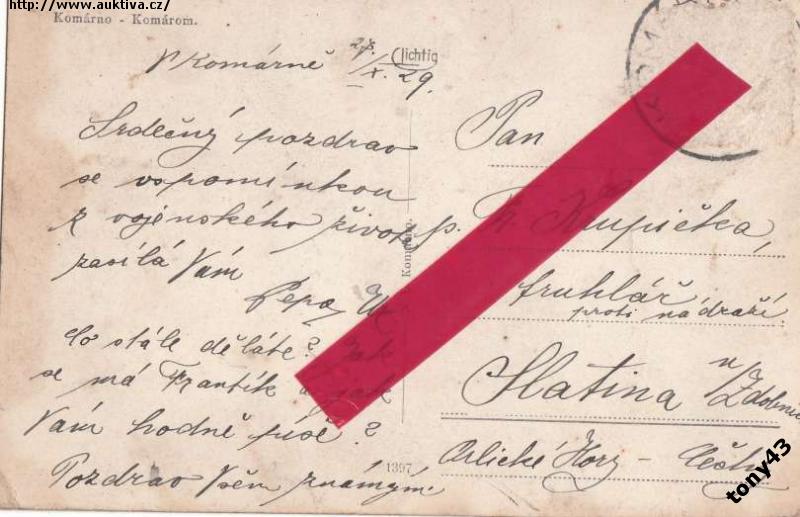 http://www.auktiva.cz/
Komárno - Komárom.
V Komárně 27./X. 29.
Lichtig
Srdečný pozdrav
se vspomínkou
z vojenského života
zasílá Vám
Pepa
Co stále děláte? Jak
se má Frantík a jak
Vám hodně píše?
Pozdrav Všem známým.
Komárno.
1397
KOMÁ
Pan
Fr. Krupička,
truhlář
proti nádraží
Slatina n/Zdobnicí
Orlické Hory - Čechy
tony43